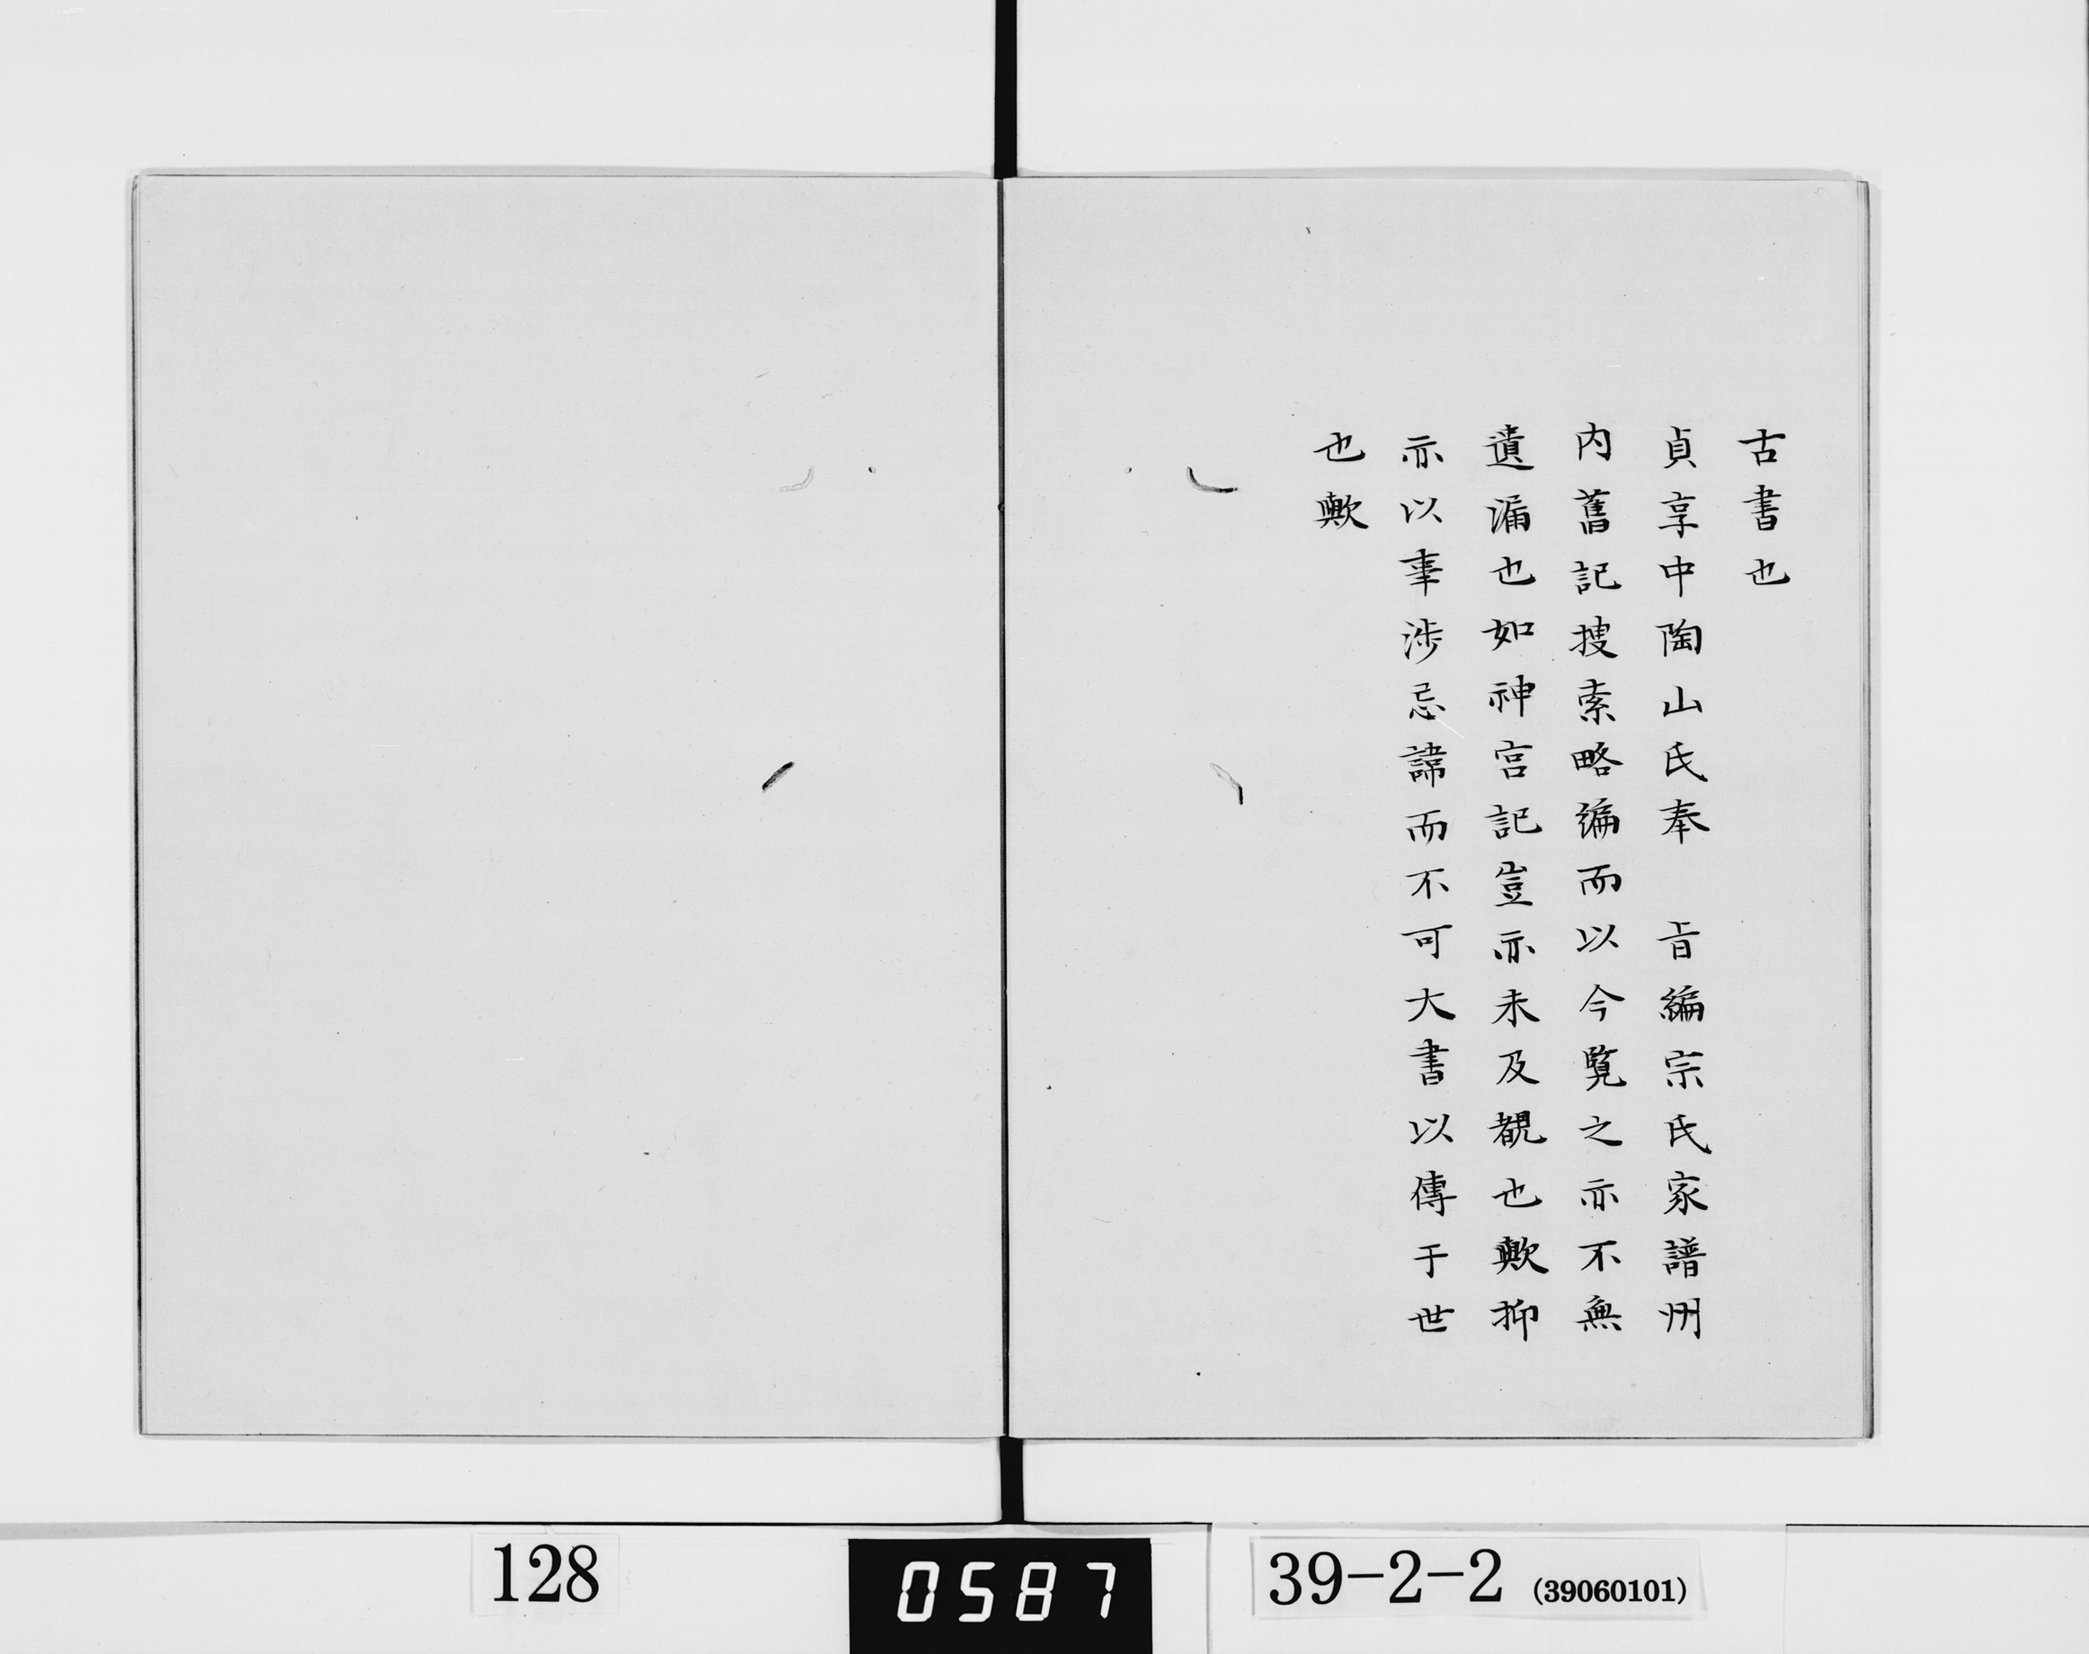 古書也
貞享中陶山氏奉　旨編宗氏家譜州
内舊記搜索略編而以今覧之亦不無
遺漏也如神宮記豈亦未及覩也歟抑
亦以事涉忌諱而不可大書以傳于世
也歟
128
0587
39-2-2 (39060101)